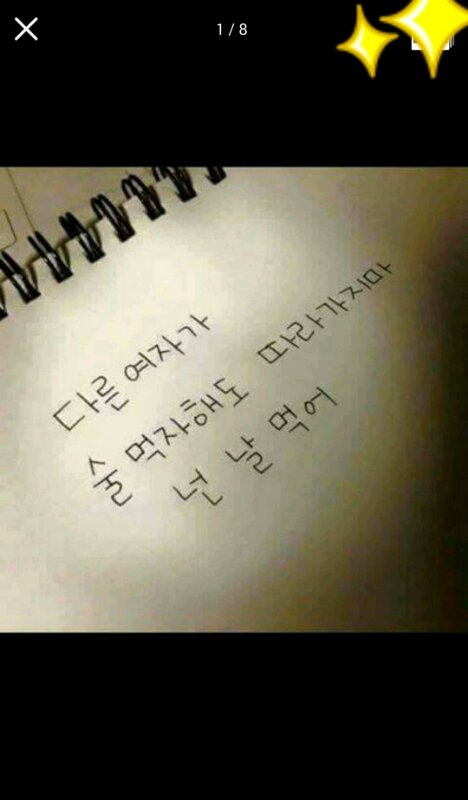 1 / 8
다른 여자가
술 먹자해도 따라가지마
넌 날 먹어